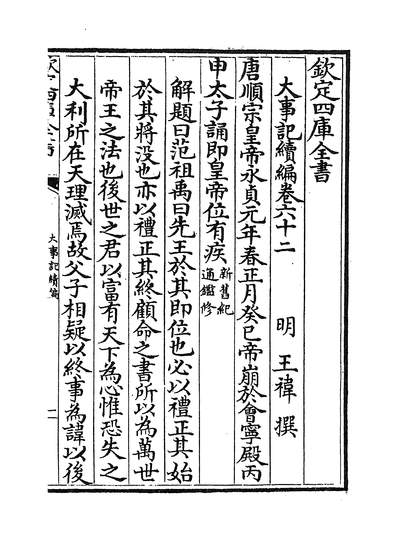 欽定四庫全書
大事記續編卷六十二
明 王禕 撰
唐順宗皇帝永貞元年春正月癸巳帝崩於會寧殿丙
申太子誦即皇帝位有疾新舊紀
通鑑修
解題曰范祖禹曰先王於其即位也必以禮正其始
於其將没也亦以禮正其終顧命之書所以為萬世
帝王之法也後世之君以富有天下為心惟恐失之
大利所在天理滅焉故父子相疑以終事為諱以後
大事記續編